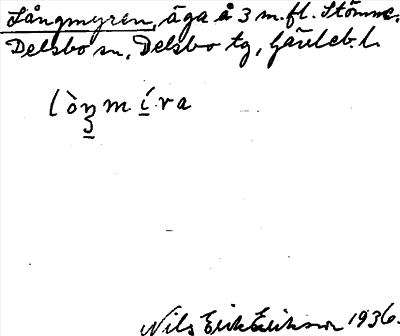 Långmyren, äga å 3 m.fl. Stömne,
Delsbo sn, Delsbo tg, Gävleb. l.
lòŋmí.ra
Nils Erik Eriksson 1936.